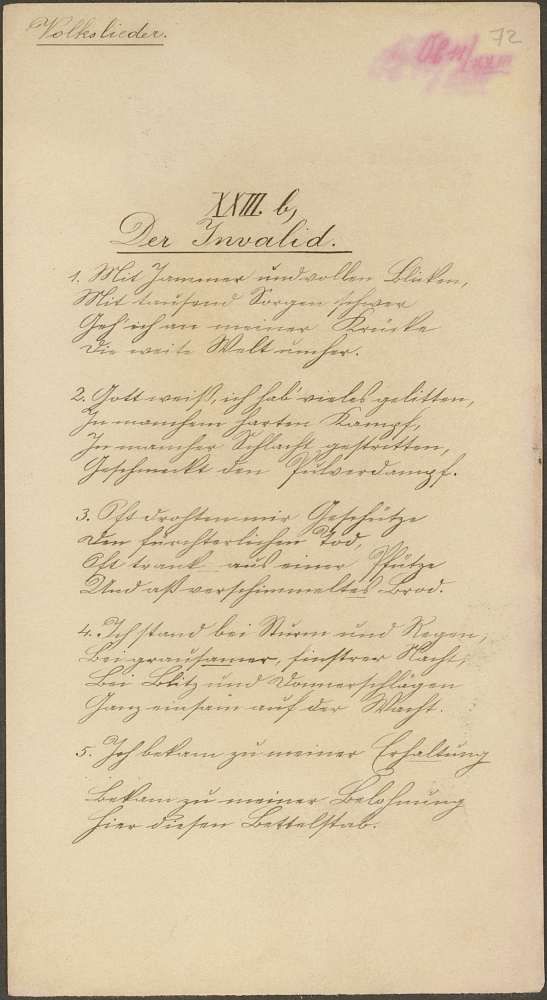 Volkslieder.
72
XXIII. b,
Der Invalid.
1. Mit Jammer und vollen Blicken,
Mit tausend Sorgen schwer
Geh' ich an meiner Krücke
Die weite Welt umher.
2. Gott weiß, ich hab' vieles gelitten,
In manchem harten Kampf,
In mancher Schlacht gestritten,
Geschmeckt den Pulverdampf.
3. Oft drohten mir Geschütze
Den fürchterlichen Tod,
Oft trank aus einer Pfütze
Und aß verschimmeltes Brod.
4. Ich stand bei Sturm und Regen,
Bei grausamer, finstrer Nacht,
Bei Blitz und Donnerschlägen
Ganz einsam auf der Wacht.
5. Ich bekam zu meiner Erhaltung
Bekam zu meiner Belohnung
Hier diesen Bettelstab.